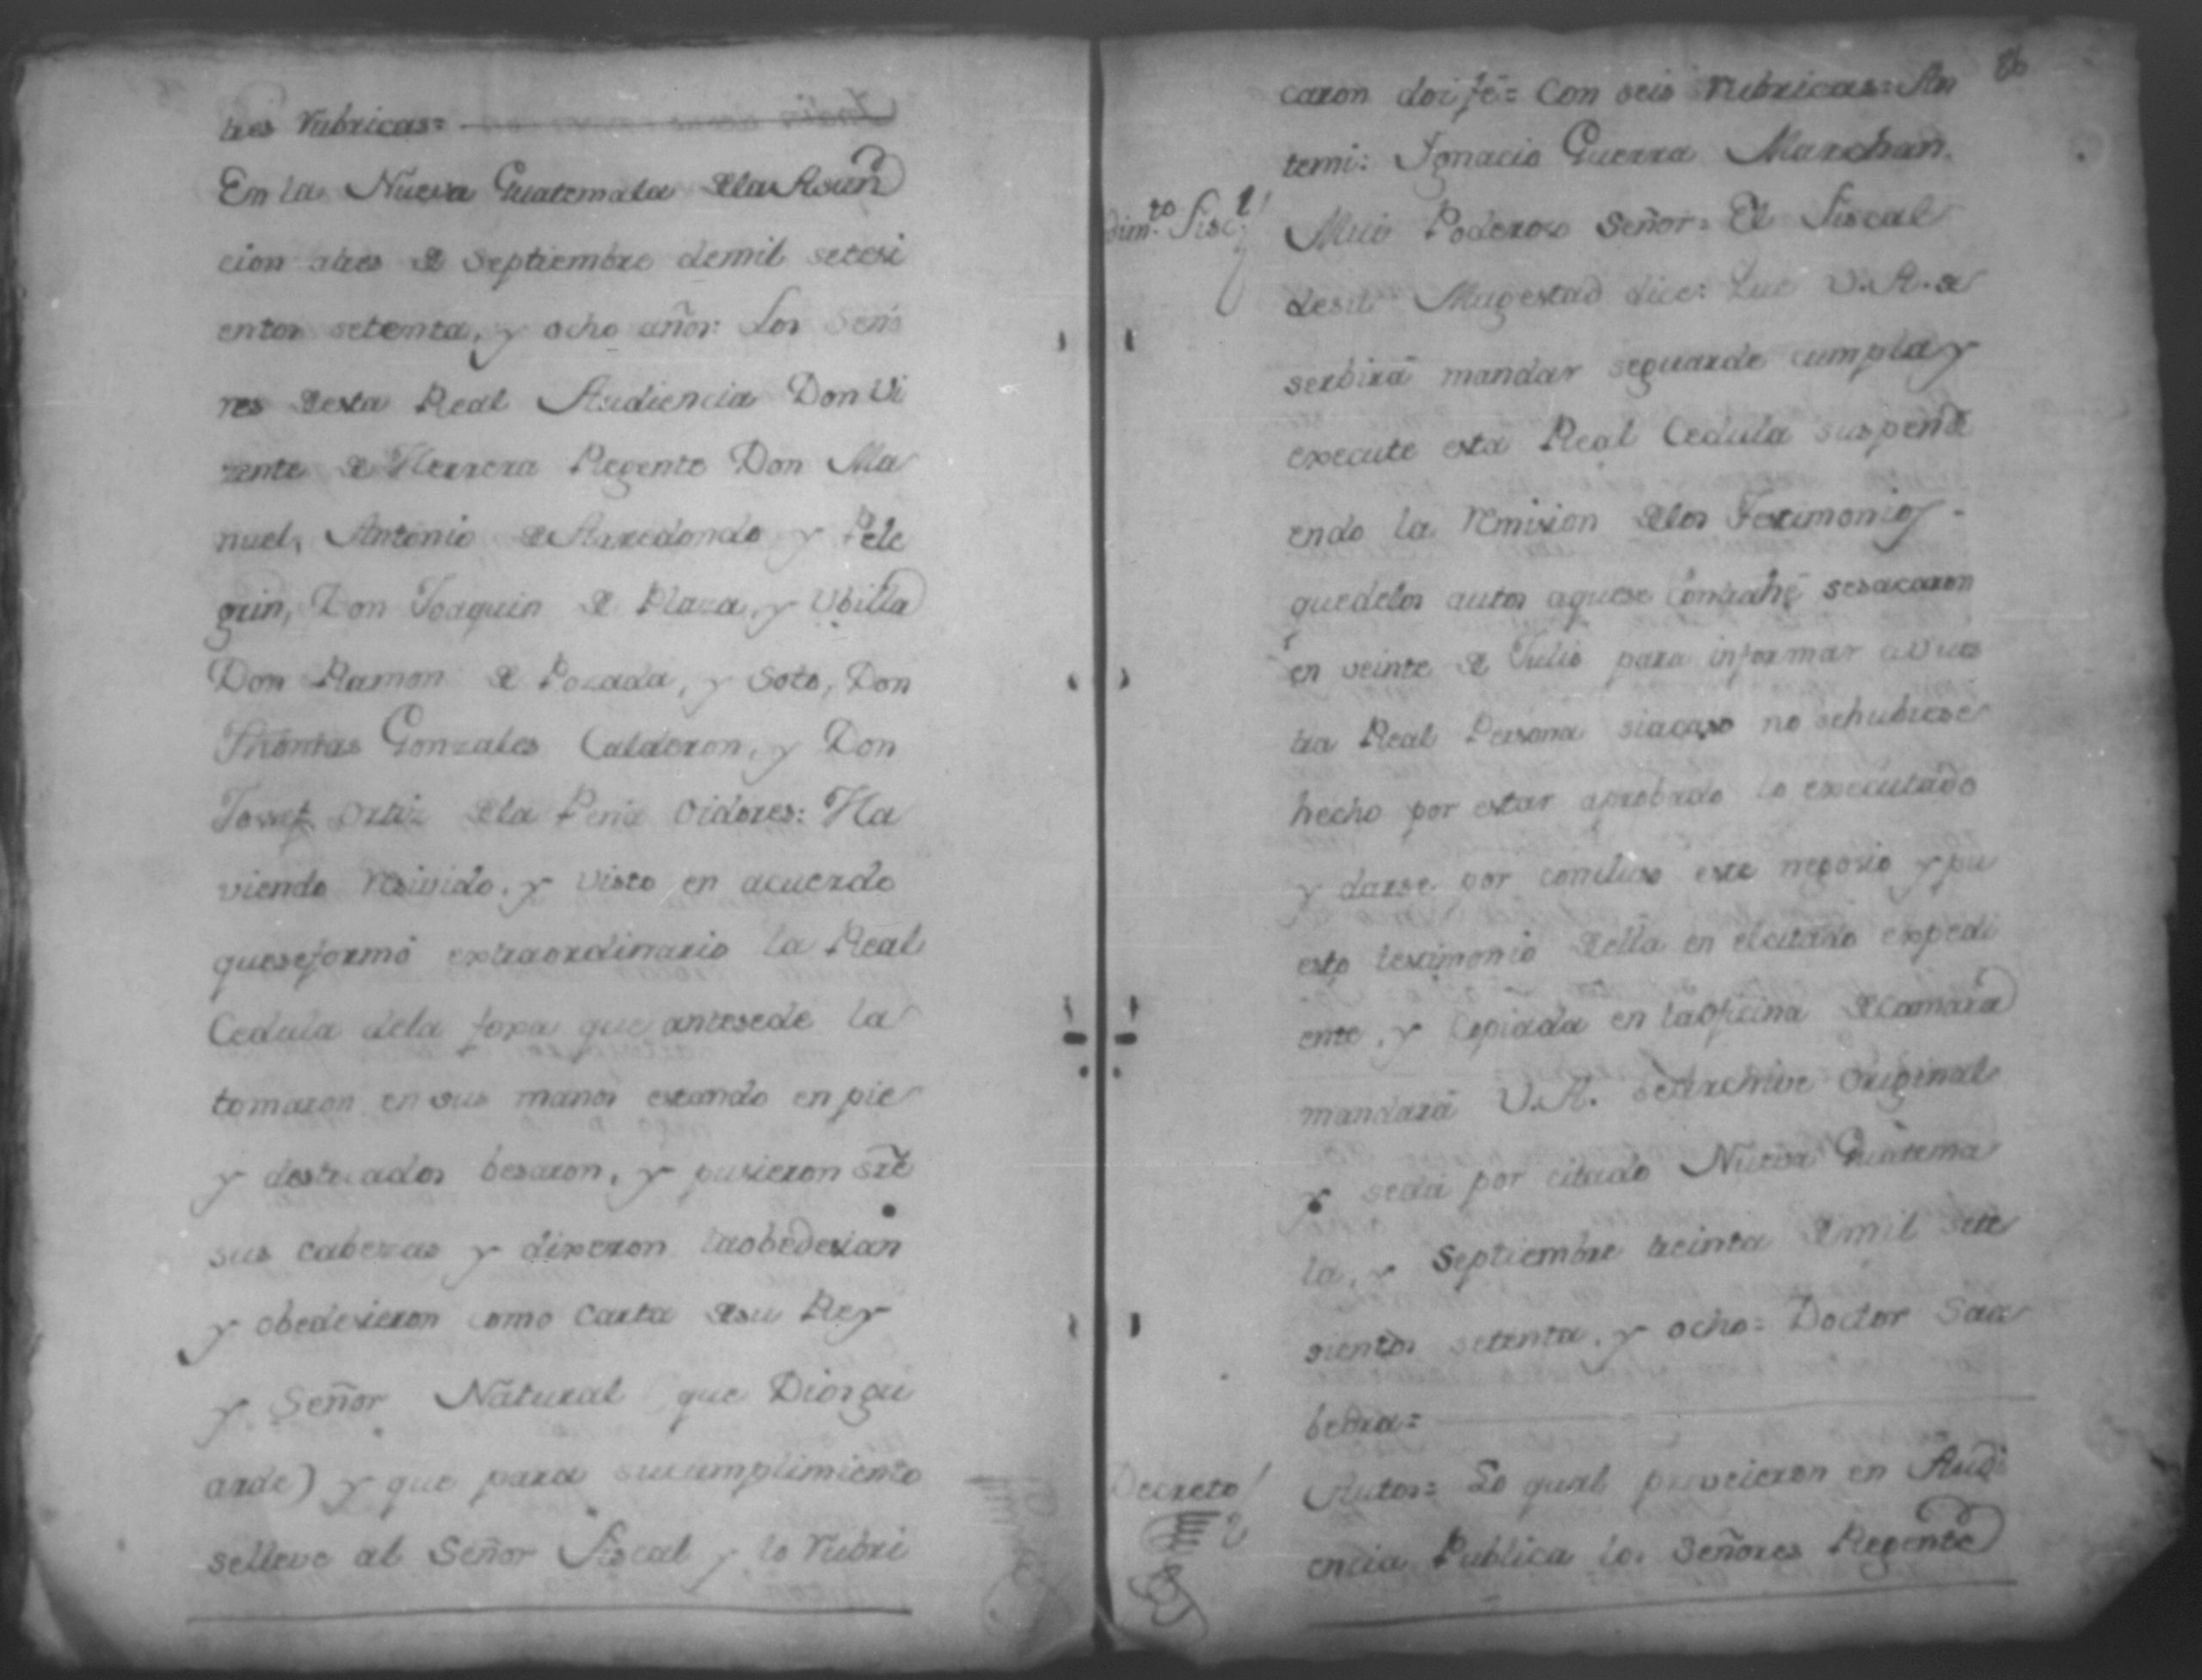 tres rubricas=
En la Nueva Guatemala dela Asun
cion atres de Septiembre demil setesi
entos setenta, y ocho años: Los Seño
res desta Real Audiencia Don Vi
zente de Herrera Regente Don Ma
nuel, Antonio de Arredondo y Pele
grin, Don Joaquin de Plaza, y Ubilla
Don Ramon de Pozada, y Soto, Don
Thomas Gonzales Calderon, y Don
Josset Ortiz dela Peña Oidores: Ha
viendo resivido, y visto en acuerdo
queseformó extraordinario la Real
Cedula dela foxa que antesede la
tomaron en sus manos estando en pie
y destocados besaron, y pusieron sre
sus cabezas y dixeron laobedesian
y obedesieron como Carta desu Rey
y Señor Natural que Diosgu
arde) y que para sucumplimiento
selleve al Señor Fiscal y lo rubri
86
caron doi fe= Con seis rubricas= An
temi: Ignacio Guerra Marchan.
dim.to Fisc.l
Mui Poderoso Señor= El Fiscal
desu Magestad dice: Que V.A. se
serbirá mandar seguarde cumpla y
execute esta Real Cedula suspendi
endo la remision delos Testimonios
quedelos autos aquese contrahe sesacaron
en veinte de Julio para informar a vues
tra Real Persona siacaso no sehubiese
hecho por estar aprobado lo executado
y darse por concluso este negosio y pu
esto testimonio della en elcitado expedi
ente, y Copiada en laoficina de Camara
mandará V.A. seArchive original
y seda por citado Nueva Guatema
la, y Septiembre treinta demil sete
sientos setenta, y ocho= Doctor Saa
bedra=
Decreto
Autos= Lo qual proveieron en Audi
encia Publica los Señores Regente